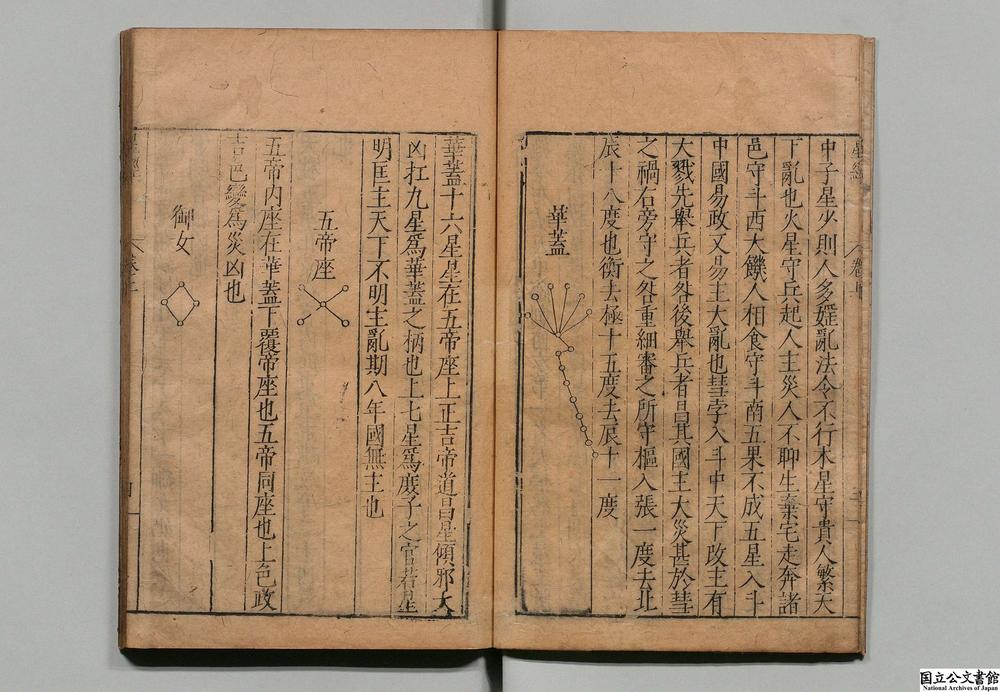 星經
中子星少則人多婬亂法令不行木星守貴人繁天
下亂也火星守兵起人主災人不聊生棄宅走奔諸
邑守斗西大饑人相食守斗南五果不成五星入斗
中國易政又易主大亂也彗孛入斗中天下政主有
大戮先舉兵者咎後舉兵者昌其國主大災甚於彗
之禍右旁守之咎重細審之所守樞入張一度去北
辰十八度也衡去極十五度去辰十一度
華蓋
華蓋十六星星在五帝座上正吉帝道昌星傾邪大
凶扛九星爲華蓋之柄也上七星爲庶子之官若星
明匡主天下不明主亂期八年國無主也
五帝座
五帝內座在華蓋下覆帝座也五帝同座也上色政
吉色變爲災凶也
御女
国立公文書館
National Archives of Japan